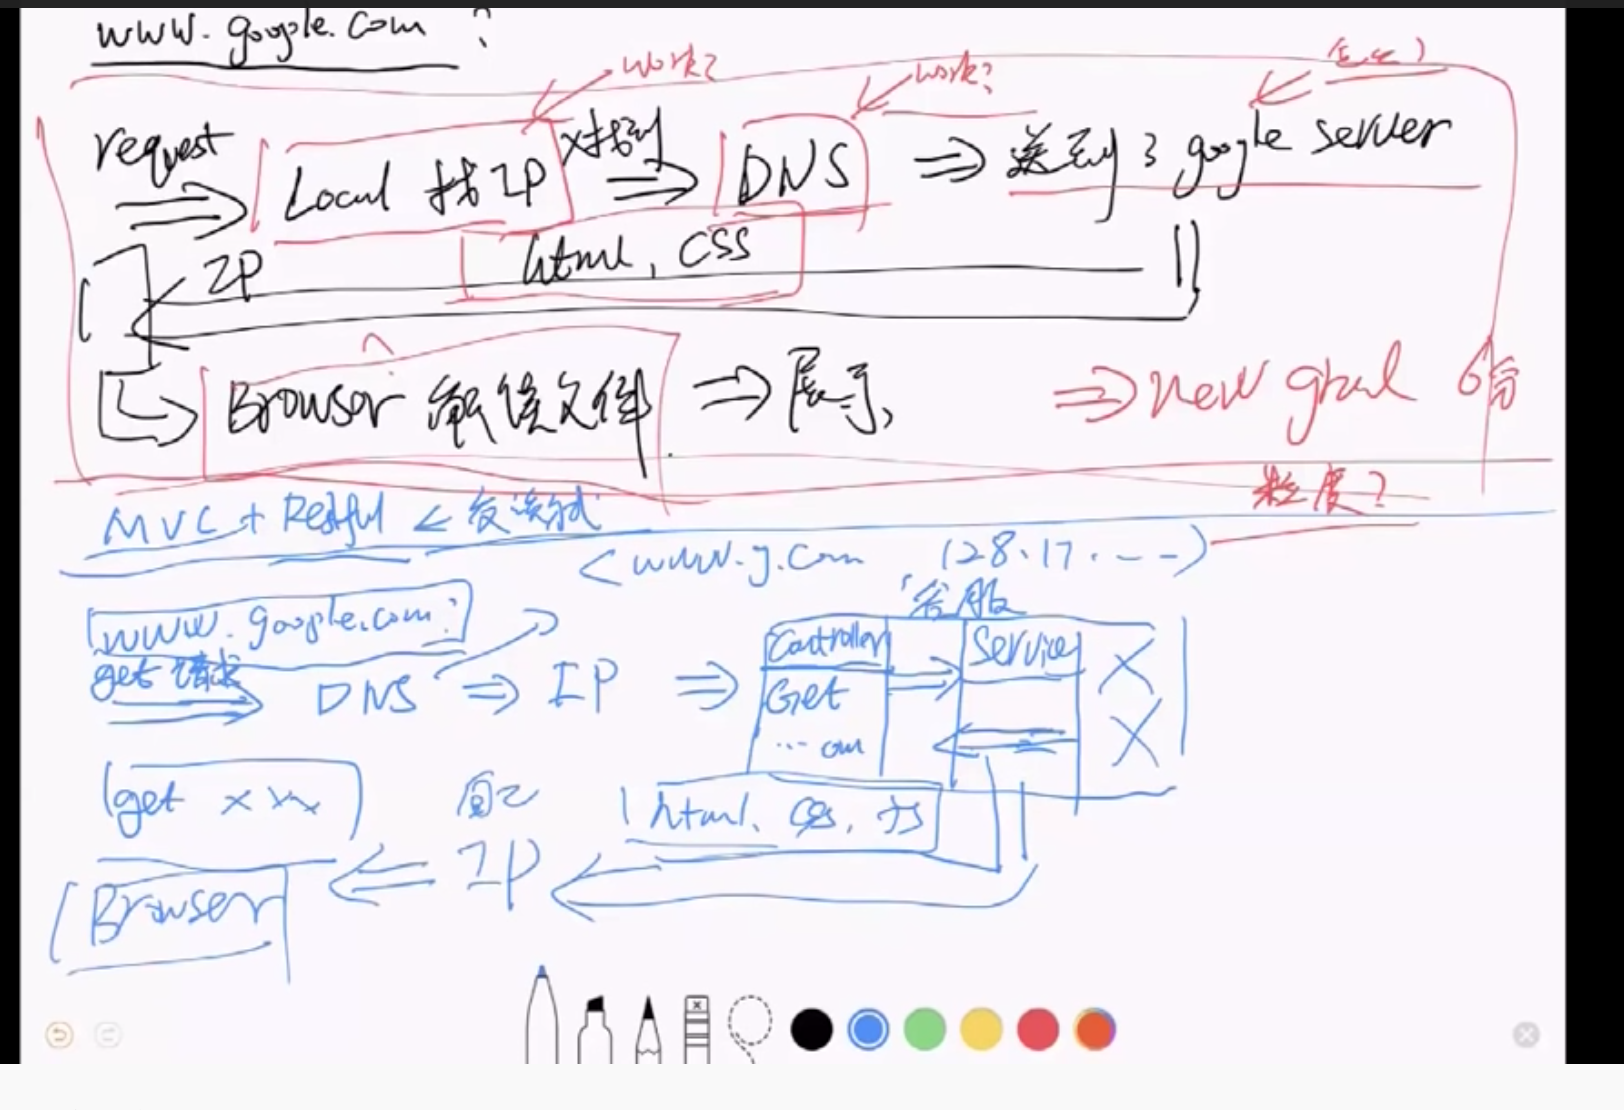 www.google.com ?
work?
work?
request
Local 找IP
DNS
送到了 google server
IP
html, CSS
Browser 解读文件
展示
new grad
粒度?
MVC + Restful
<www.g.com 128.17.---)
客服
www.google.com
get 请求
DNS
IP
Controller
Service
X
Get
X
get xxx
html, css, js
IP
Browser